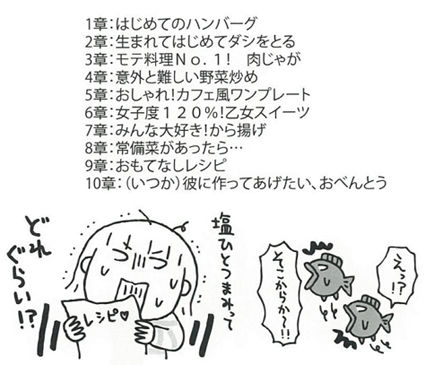 1章：はじめてのハンバーグ
2章：生まれてはじめてダシをとる
3章：モテ料理Ｎｏ．1！　肉じゃが
4章：意外と難しい野菜炒め
5章：おしゃれ！カフェ風ワンプレート
6章：女子度１２０％！乙女スイーツ
7章：みんな大好き！から揚げ
8章：常備菜があったら…
9章：おもてなしレシピ
10章：（いつか）彼に作ってあげたい、おべんとう
塩ひとつまみって
どれ
ぐらい!?
レシピ♡
えっ!?
そこからか〜!!